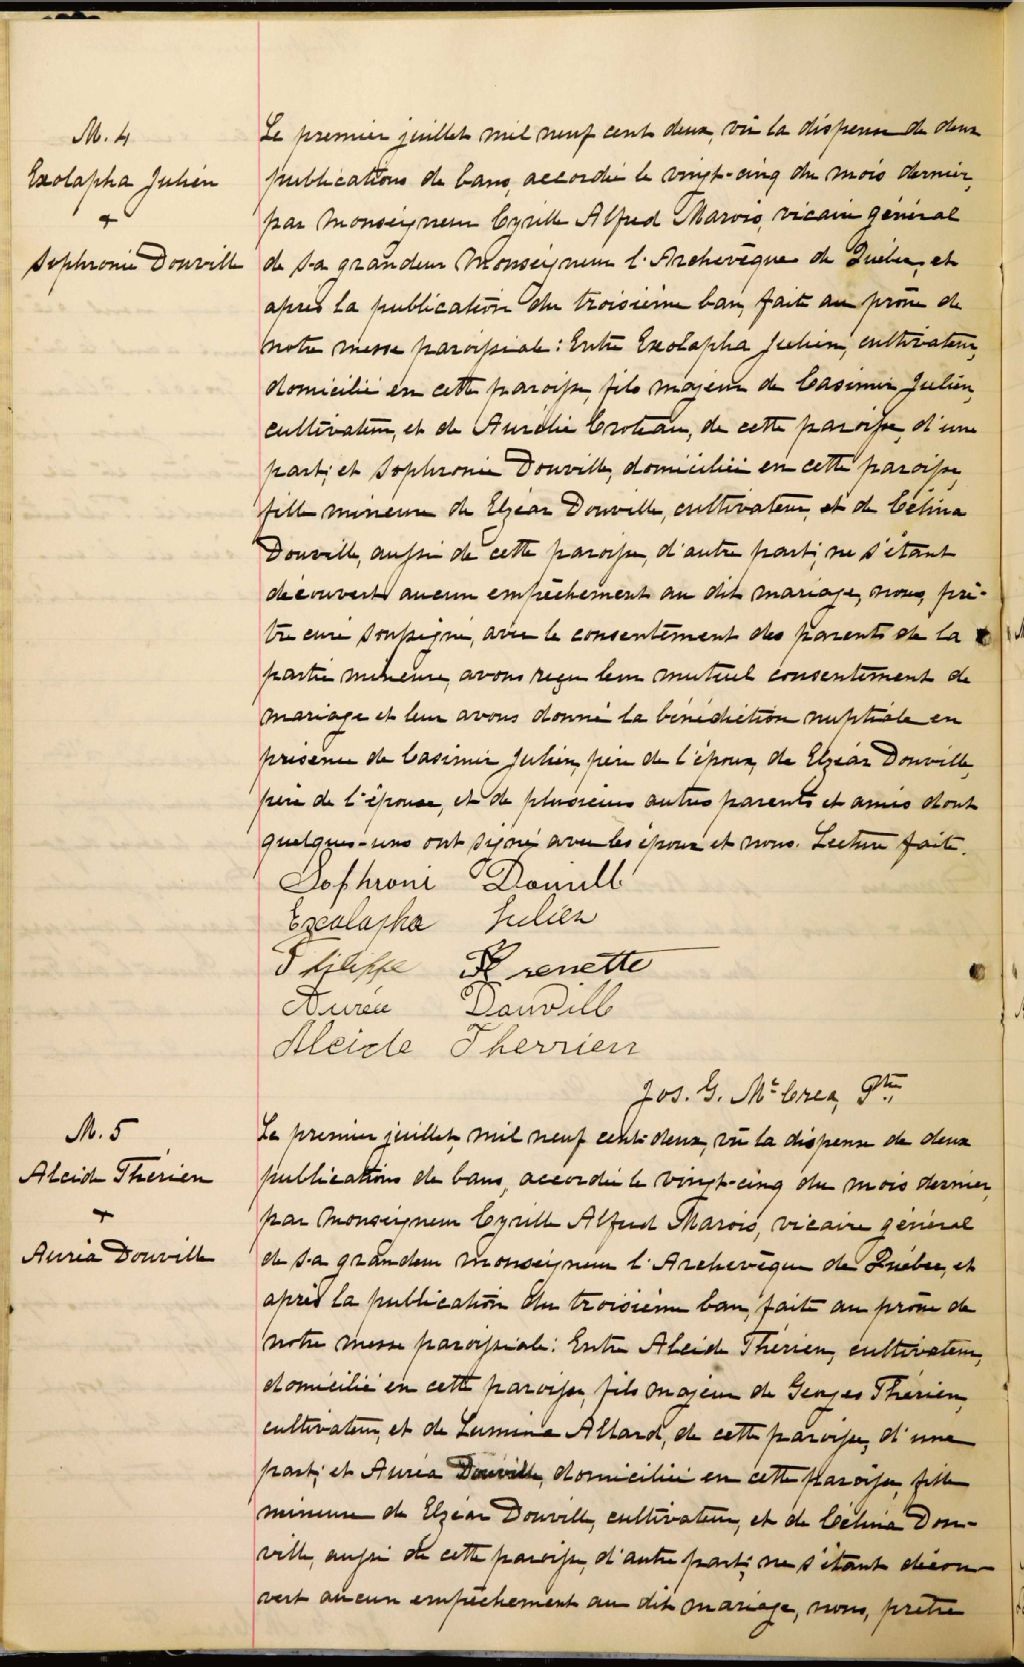 M. 4
Exolapha Julien
+
Sophronie Douville
Le premier juillet mil neuf cent deux, vu la dispense de deux
publications de bans, accordée le vingt-cinq du mois dernier,
par Monseigneur Cyrille Alfred Marois, vicaire général
de Sa grandeur Monseigneur l'Archevêque de Québec, et
après la publication du troisième ban, faite au prône de
notre messe paroissiale: Entre Exolapha Julien, cultivateur,
domicilié en cette paroisse, fils majeur de Casimir Julien,
cultivateur, et de Aurélie Croteau, de cette paroisse, d'une
part; et Sophronie Douville, domiciliée en cette paroisse,
fille mineure de Elzéar Douville, cultivateur, et de Célina
Douville, aussi de cette paroisse, d'autre part; ne s'étant
découvert aucun empêchement au dit mariage, nous, prê-
tre curé soussigné, avec le consentement des parents de la
partie mineure, avons reçu leur mutuel consentement de
mariage et leur avons donné la bénédiction nuptiale en
présence de Casimir Julien, père de l'époux, de Elzéar Douville,
père de l'épouse, et de plusieurs autres parents et amis dont
quelques-uns ont signé avec les époux et nous. Lecture faite.
Sophroni Douvill
Exolapha Julien
Philippe Frenette
Auréa Douvill
Alcide Therrien
Jos. G. McCrea, Ptre,
M. 5
Alcide Thérien
+
Auréa Douville
Le premier juillet, mil neuf cent deux, vu la dispense de deux
publications de bans, accordée le vingt-cinq du mois dernier,
par Monseigneur Cyrille Alfred Marois, vicaire général
de Sa grandeur Monseigneur l'Archevêque de Québec, et
après la publication du troisième ban, faite au prône de
notre messe paroissiale: Entre Alcide Thérien, cultivateur,
domicilié en cette paroisse, fils majeur de Georges Thérien,
cultivateur, et de Lumina Allard, de cette paroisse, d'une
part; et Auréa Douville, domiciliée en cette paroisse, fille
mineure de Elzéar Douville, cultivateur, et de Célina Dou-
ville, aussi de cette paroisse, d'autre part; ne s'étant décou-
vert aucun empêchement au dit mariage, nous, prêtre